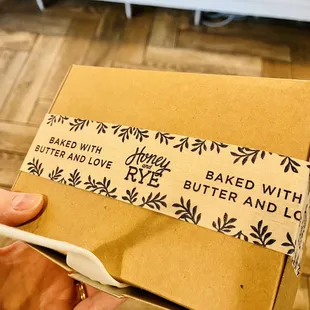 BAKED WITH
BUTTER AND LOVE
Honey
and
RYE
BAKED WITH
BUTTER AND LO